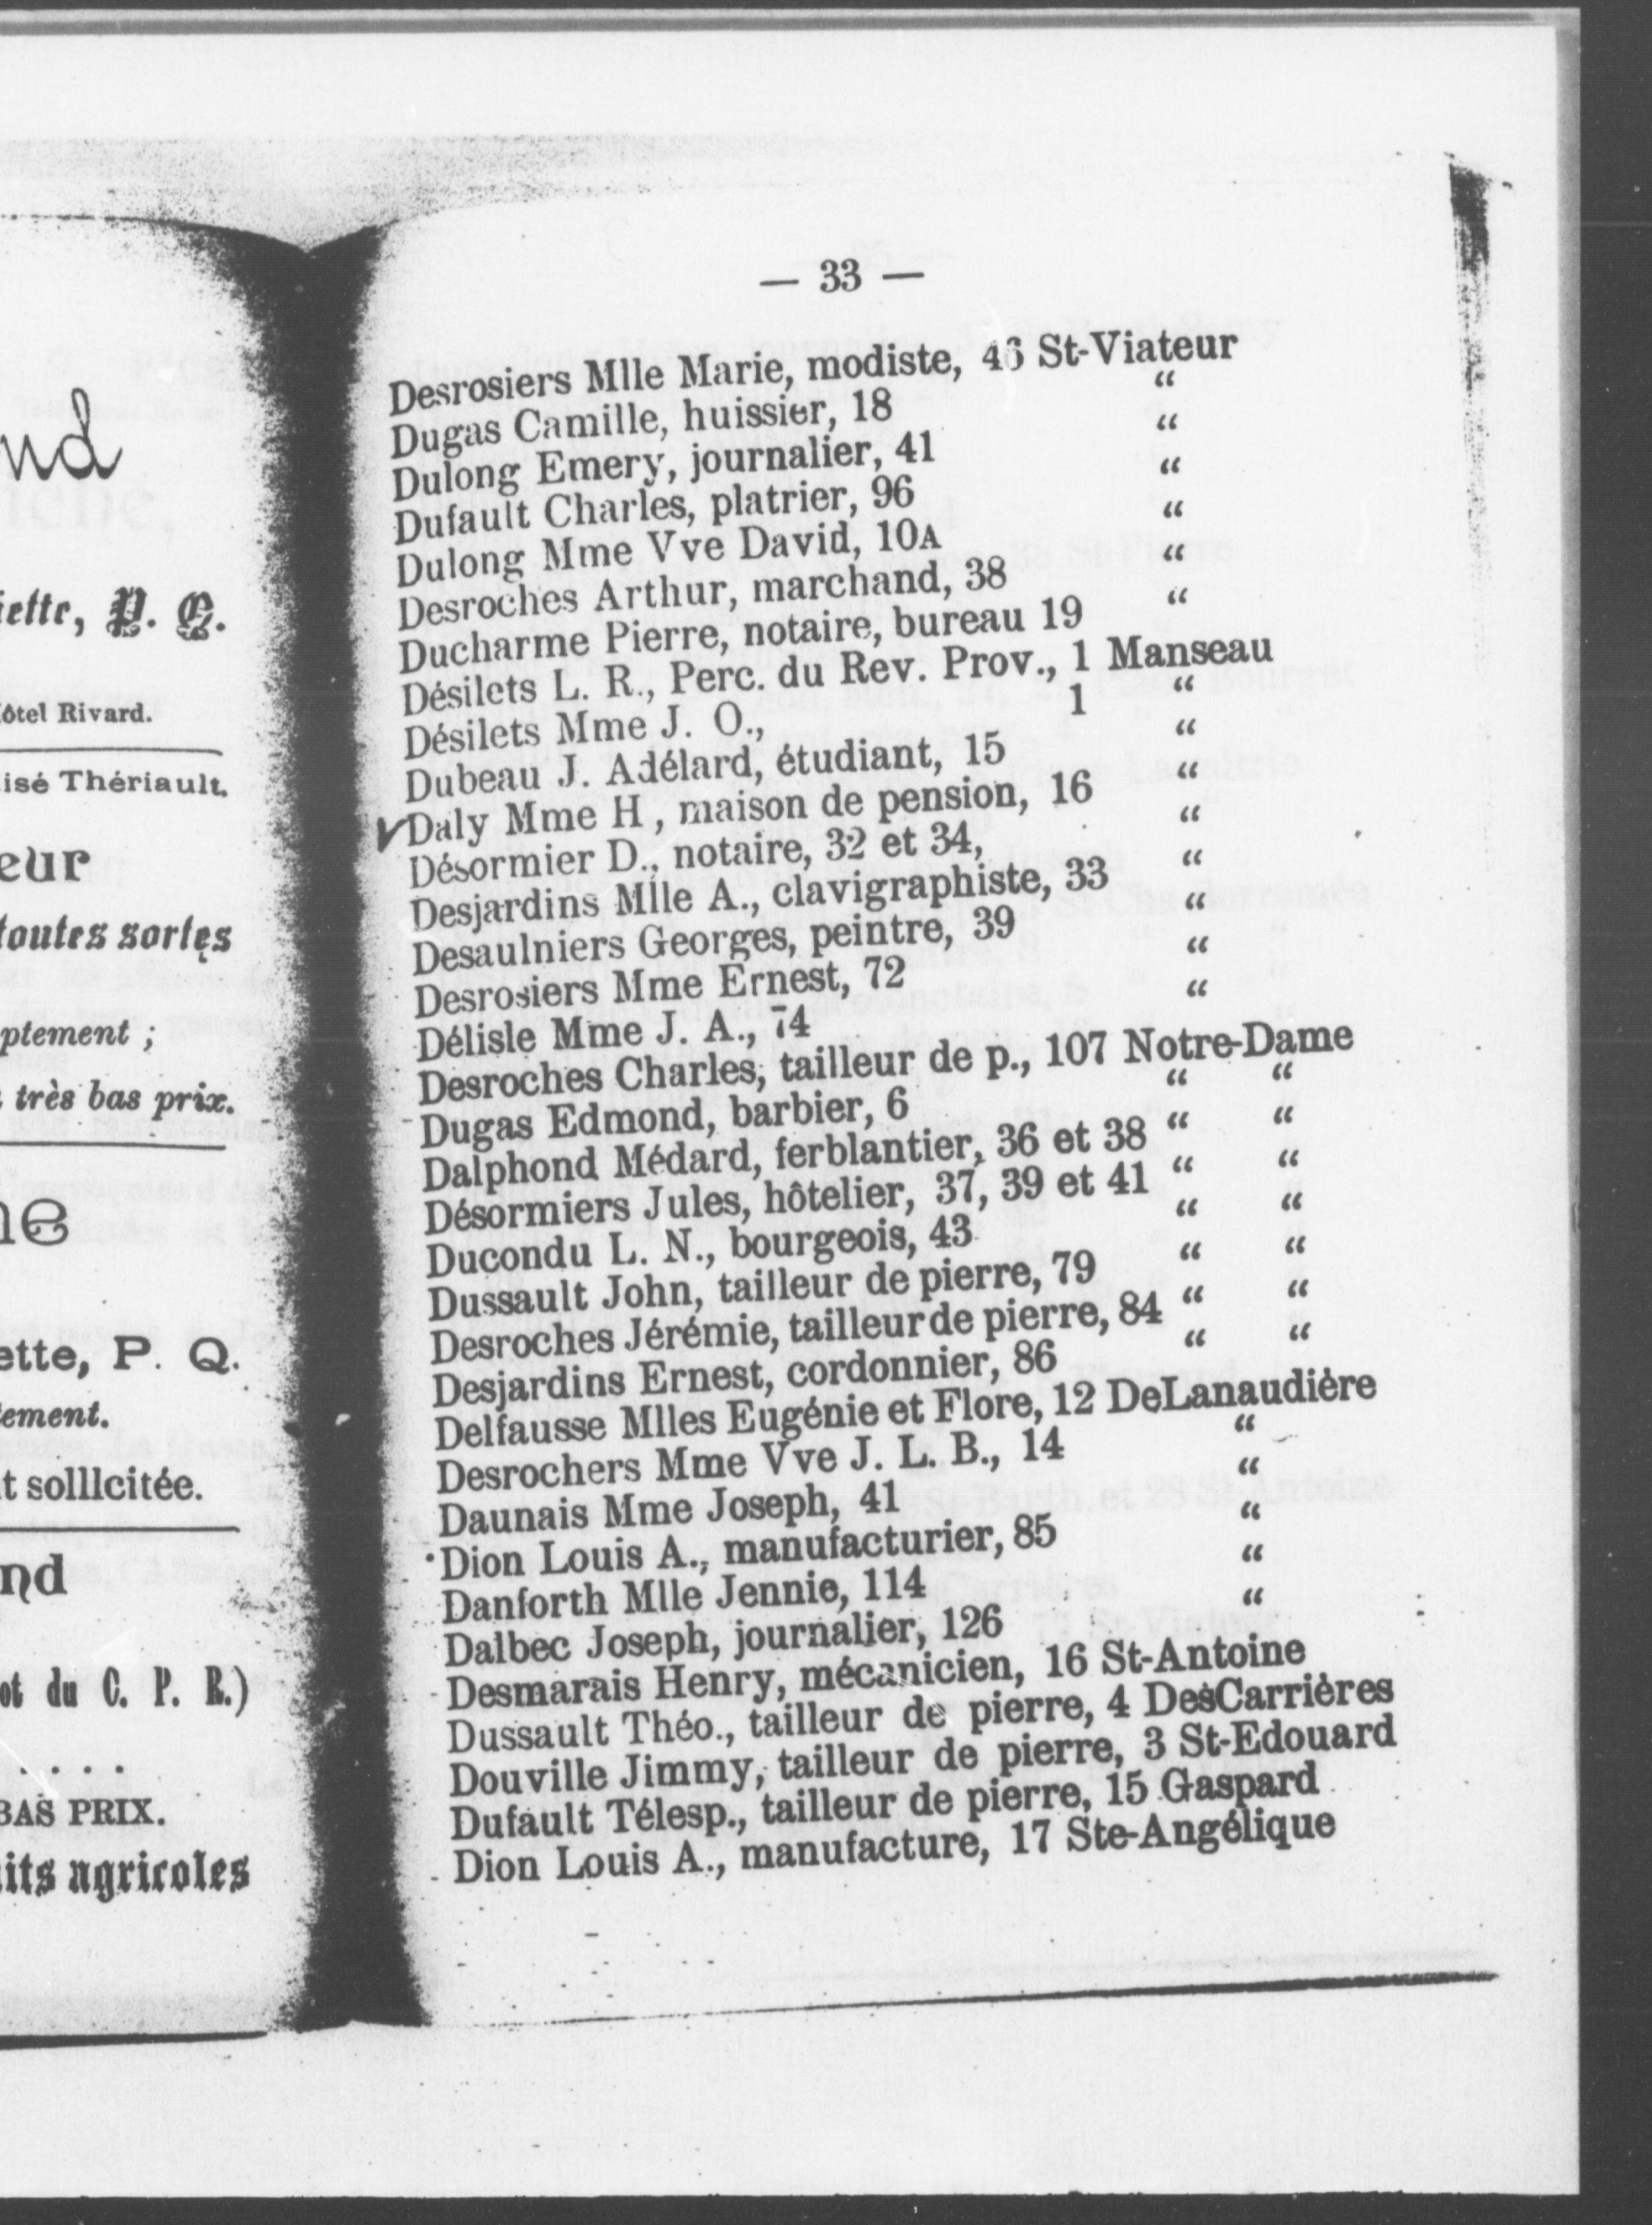 nd
iette, P. Q.
ôtel Rivard.
isé Thériault.
eur
toutes sortes
ptement ;
très bas prix.
ne
ette, P. Q.
ement.
t solllcitée.
nd
ot du C. P. R.)
. . . . .
BAS PRIX.
its agricoles
— 33 —
Desrosiers Mlle Marie, modiste, 46 St-Viateur
Dugas Camille, huissier, 18 “
Dulong Emery, journalier, 41 “
Dufault Charles, platrier, 96 “
Dulong Mme Vve David, 10A “
Desroches Arthur, marchand, 38 “
Ducharme Pierre, notaire, bureau 19 “
Désilets L. R., Perc. du Rev. Prov., 1 Manseau
Désilets Mme J. O., 1 “
Dubeau J. Adélard, étudiant, 15 “
Daly Mme H , maison de pension, 16 “
Désormier D., notaire, 32 et 34, “
Desjardins Mlle A., clavigraphiste, 33 “
Desaulniers Georges, peintre, 39 “
Desrosiers Mme Ernest, 72 “
Délisle Mme J. A., 74 “
Desroches Charles, tailleur de p., 107 Notre-Dame
Dugas Edmond, barbier, 6 “ “
Dalphond Médard, ferblantier, 36 et 38 “ “
Désormiers Jules, hôtelier, 37, 39 et 41 “ “
Ducondu L. N., bourgeois, 43 “ “
Dussault John, tailleur de pierre, 79 “ “
Desroches Jérémie, tailleur de pierre, 84 “ “
Desjardins Ernest, cordonnier, 86 “ “
Delfausse Mlles Eugénie et Flore, 12 DeLanaudière
Desrochers Mme Vve J. L. B., 14 “
Daunais Mme Joseph, 41 “
Dion Louis A., manufacturier, 85 “
Danforth Mlle Jennie, 114 “
Dalbec Joseph, journalier, 126 “
Desmarais Henry, mécanicien, 16 St-Antoine
Dussault Théo., tailleur de pierre, 4 DesCarrières
Douville Jimmy, tailleur de pierre, 3 St-Edouard
Dufault Télesp., tailleur de pierre, 15 Gaspard
Dion Louis A., manufacture, 17 Ste-Angélique